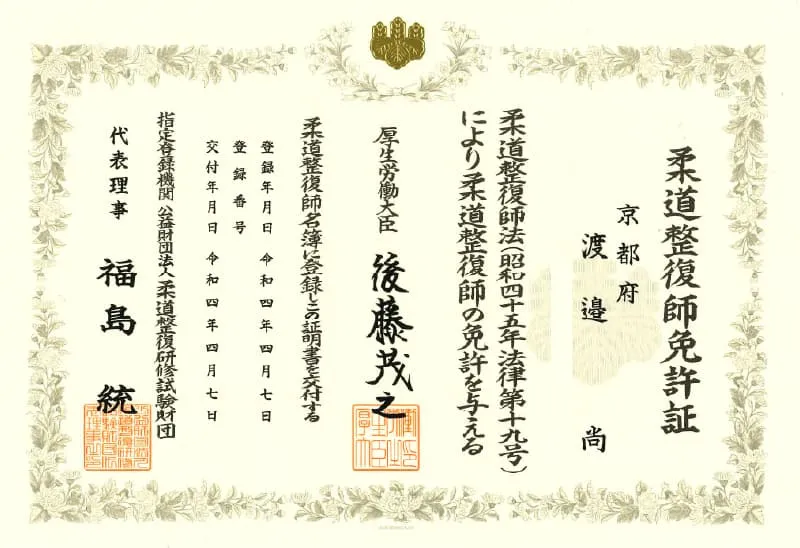 柔道整復師免許証
京都府
渡邉 尚
柔道整復師法(昭和四十五年法律第十九号)
により柔道整復師の免許を与える
厚生労働大臣 後藤茂之
柔道整復師名簿に登録しこの証明書を交付する
登録年月日 令和四年四月七日
登録番号
交付年月日 令和四年四月七日
指定登録機関 公益財団法人柔道整復研修試験財団
代表理事 福島 統